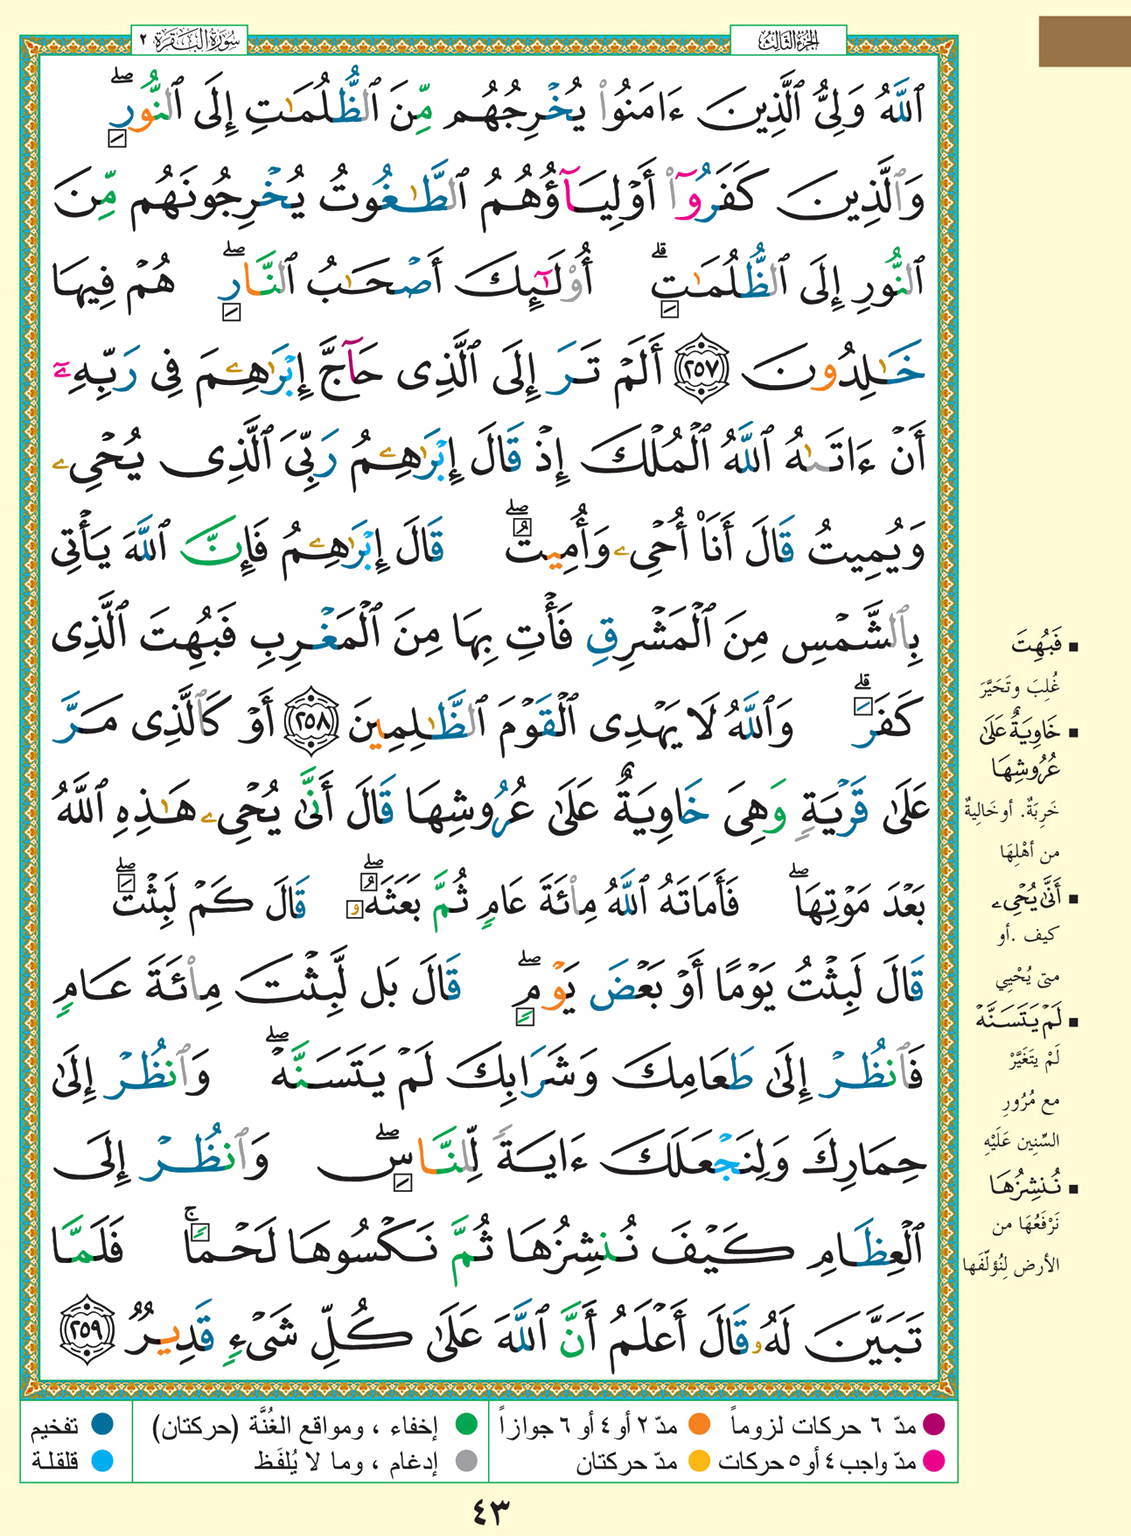 الجزء الثالث
سورة البقرة ٢
ٱللَّهُ وَلِىُّ ٱلَّذِينَ ءَامَنُوا۟ يُخْرِجُهُم مِّنَ ٱلظُّلُمَٰتِ إِلَى ٱلنُّورِ ۖ
وَٱلَّذِينَ كَفَرُوٓا۟ أَوْلِيَآؤُهُمُ ٱلطَّٰغُوتُ يُخْرِجُونَهُم مِّنَ
ٱلنُّورِ إِلَى ٱلظُّلُمَٰتِ ۗ أُو۟لَٰٓئِكَ أَصْحَٰبُ ٱلنَّارِ ۖ هُمْ فِيهَا
خَٰلِدُونَ ٢٥٧ أَلَمْ تَرَ إِلَى ٱلَّذِى حَآجَّ إِبْرَٰهِـۧمَ فِى رَبِّهِۦٓ
أَنْ ءَاتَىٰهُ ٱللَّهُ ٱلْمُلْكَ إِذْ قَالَ إِبْرَٰهِـۧمُ رَبِّىَ ٱلَّذِى يُحْىِۦ
وَيُمِيتُ قَالَ أَنَا۠ أُحْىِۦ وَأُمِيتُ ۖ قَالَ إِبْرَٰهِـۧمُ فَإِنَّ ٱللَّهَ يَأْتِى
بِٱلشَّمْسِ مِنَ ٱلْمَشْرِقِ فَأْتِ بِهَا مِنَ ٱلْمَغْرِبِ فَبُهِتَ ٱلَّذِى
كَفَرَ ۗ وَٱللَّهُ لَا يَهْدِى ٱلْقَوْمَ ٱلظَّٰلِمِينَ ٢٥٨ أَوْ كَٱلَّذِى مَرَّ
عَلَىٰ قَرْيَةٍ وَهِىَ خَاوِيَةٌ عَلَىٰ عُرُوشِهَا قَالَ أَنَّىٰ يُحْىِۦ هَٰذِهِ ٱللَّهُ
بَعْدَ مَوْتِهَا ۖ فَأَمَاتَهُ ٱللَّهُ مِا۟ئَةَ عَامٍ ثُمَّ بَعَثَهُۥ ۖ قَالَ كَمْ لَبِثْتَ ۖ
قَالَ لَبِثْتُ يَوْمًا أَوْ بَعْضَ يَوْمٍ ۖ قَالَ بَل لَّبِثْتَ مِا۟ئَةَ عَامٍ
فَٱنظُرْ إِلَىٰ طَعَامِكَ وَشَرَابِكَ لَمْ يَتَسَنَّهْ ۖ وَٱنظُرْ إِلَىٰ
حِمَارِكَ وَلِنَجْعَلَكَ ءَايَةً لِّلنَّاسِ ۖ وَٱنظُرْ إِلَى
ٱلْعِظَامِ كَيْفَ نُنشِزُهَا ثُمَّ نَكْسُوهَا لَحْمًا ۚ فَلَمَّا
تَبَيَّنَ لَهُۥ قَالَ أَعْلَمُ أَنَّ ٱللَّهَ عَلَىٰ كُلِّ شَىْءٍ قَدِيرٌ ٢٥٩
▪ فَبُهِتَ
غُلِبَ وتَحَيَّرَ
▪ خَاوِيَةٌ عَلَىٰ
عُرُوشِهَا
خَرِبَةٌ. أو خَالِيةٌ
من أهْلِهَا
▪ أَنَّىٰ يُحْىِۦ
كيف .أو
متى يُحْيِي
▪ لَمْ يَتَسَنَّهْ
لَمْ يتَغَيَّرْ
مع مُرُورِ
السِّنِين عَلَيْهِ
▪ نُنشِزُهَا
نَرْفَعُهَا من
الأرض لِنُؤلّفَها
مدّ ٦ حركات لزوماً
مدّ ٢ أو ٤ أو ٦ جوازاً
إخفاء ، ومواقع الغُنَّة (حركتان)
تفخيم
مدّ واجب ٤ أو ٥ حركات
مدّ حركتان
إدغام ، وما لا يُلفَظ
قلقلة
٤٣